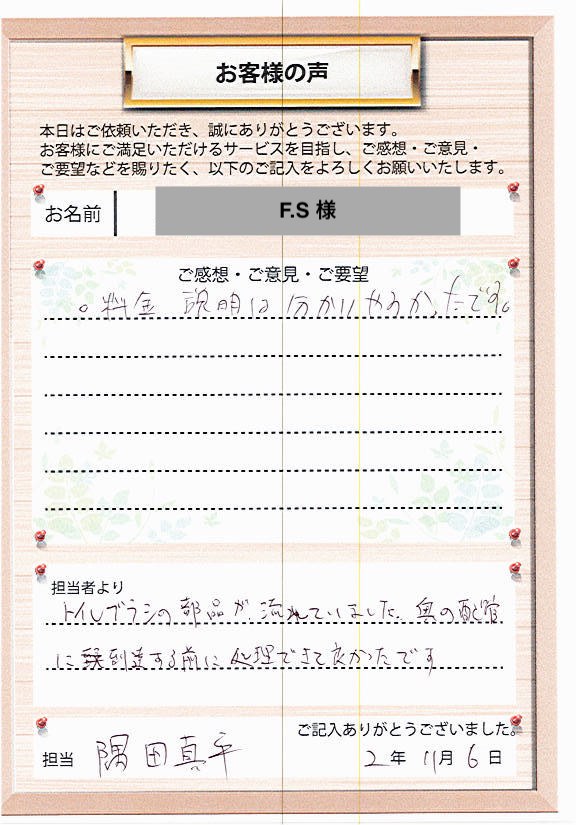 お客様の声
本日はご依頼いただき、誠にありがとうございます。
お客様にご満足いただけるサービスを目指し、ご感想・ご意見・
ご要望などを賜りたく、以下のご記入をよろしくお願いいたします。
お名前 F.S 様
ご感想・ご意見・ご要望
。料金 説明は分かりやすかったです。
担当者より
トイレブラシの部品が、流れていました。奥の配管
に到達する前に処理できて良かったです
ご記入ありがとうございました。
担当 隅田真平 2年 11月 6日